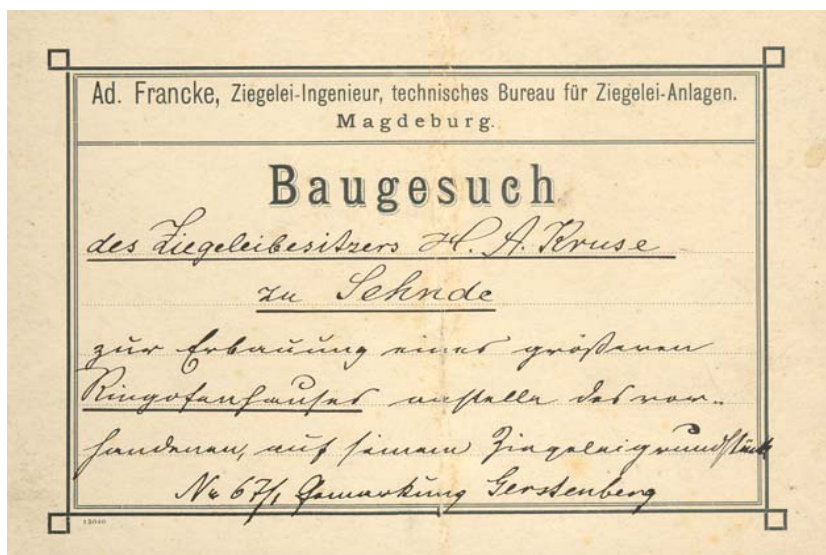 Ad. Francke, Ziegelei-Ingenieur, technisches Bureau für Ziegelei-Anlagen.
Magdeburg.
Baugesuch
des Ziegeleibesitzers H. A. Kruse
zu Sehnde
zur Erbauung eines größeren
Ringofenhauses anstelle des vor-
handenen, auf seinem Ziegeleigrundstück
No 67/1 Gemarkung Gerstenberg
13040